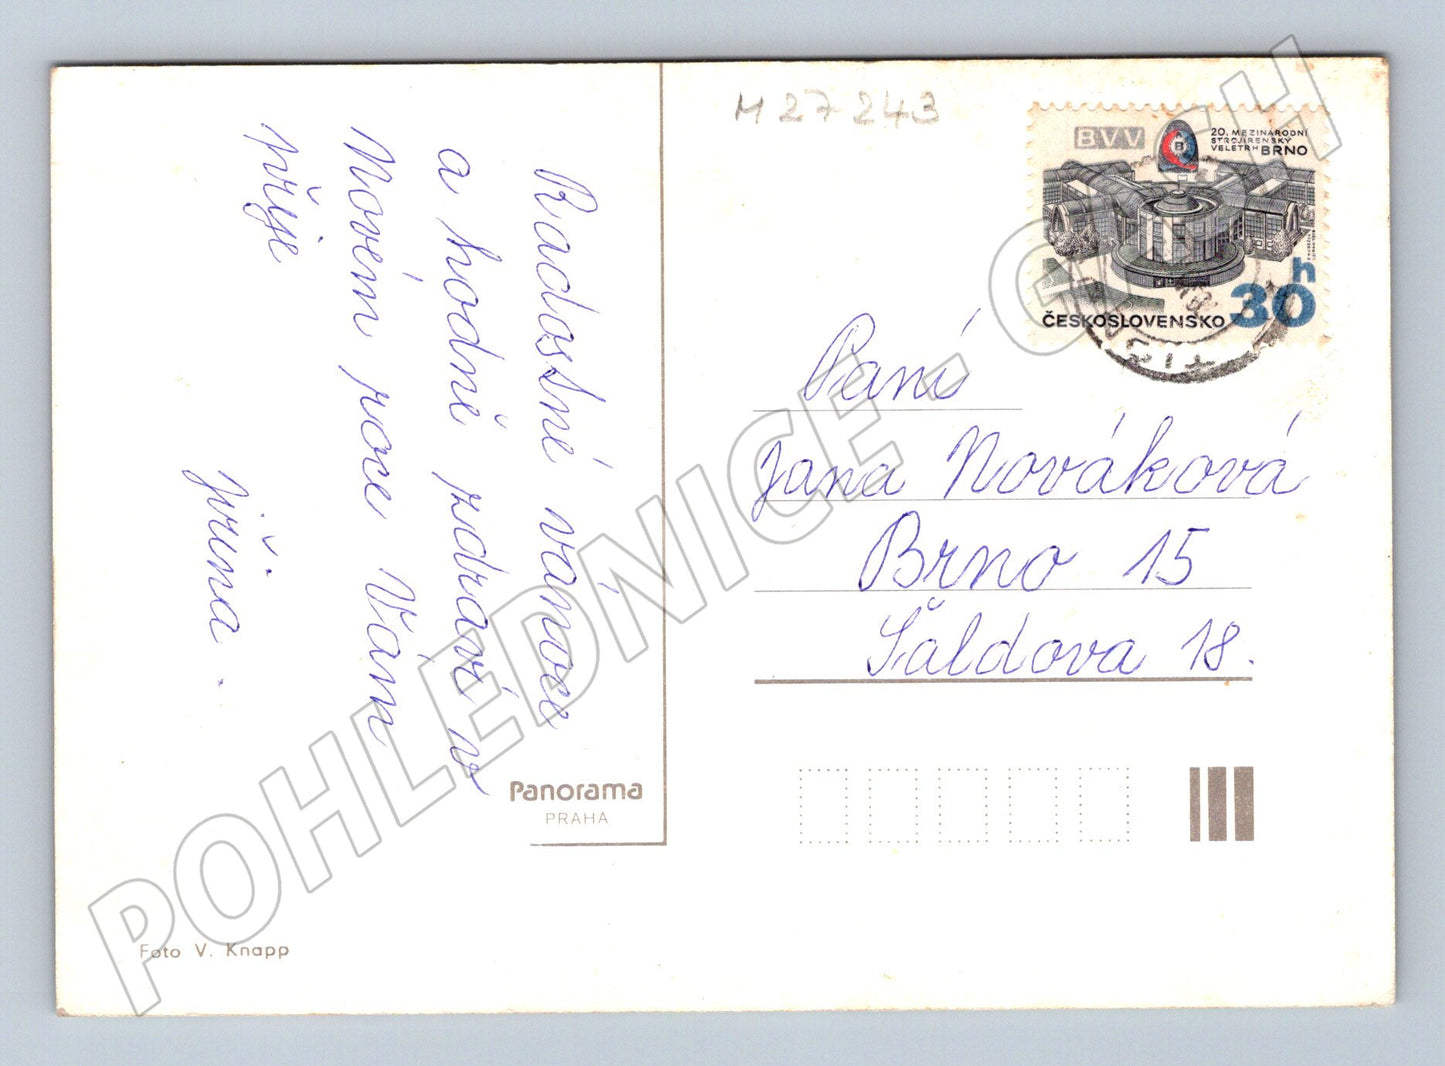 M 27 243
BVV
20. MEZINÁRODNÍ
STROJÍRENSKÝ
VELETRH BRNO
ČESKOSLOVENSKO 30 h
Radostné vánoce
a hodně zdraví v
Novém roce Vám
přije
jiřina.
Paní
Jana Nováková
Brno 15
Šaldova 18.
Panorama
PRAHA
Foto V. Knapp
POHLEDNICE.GMCH